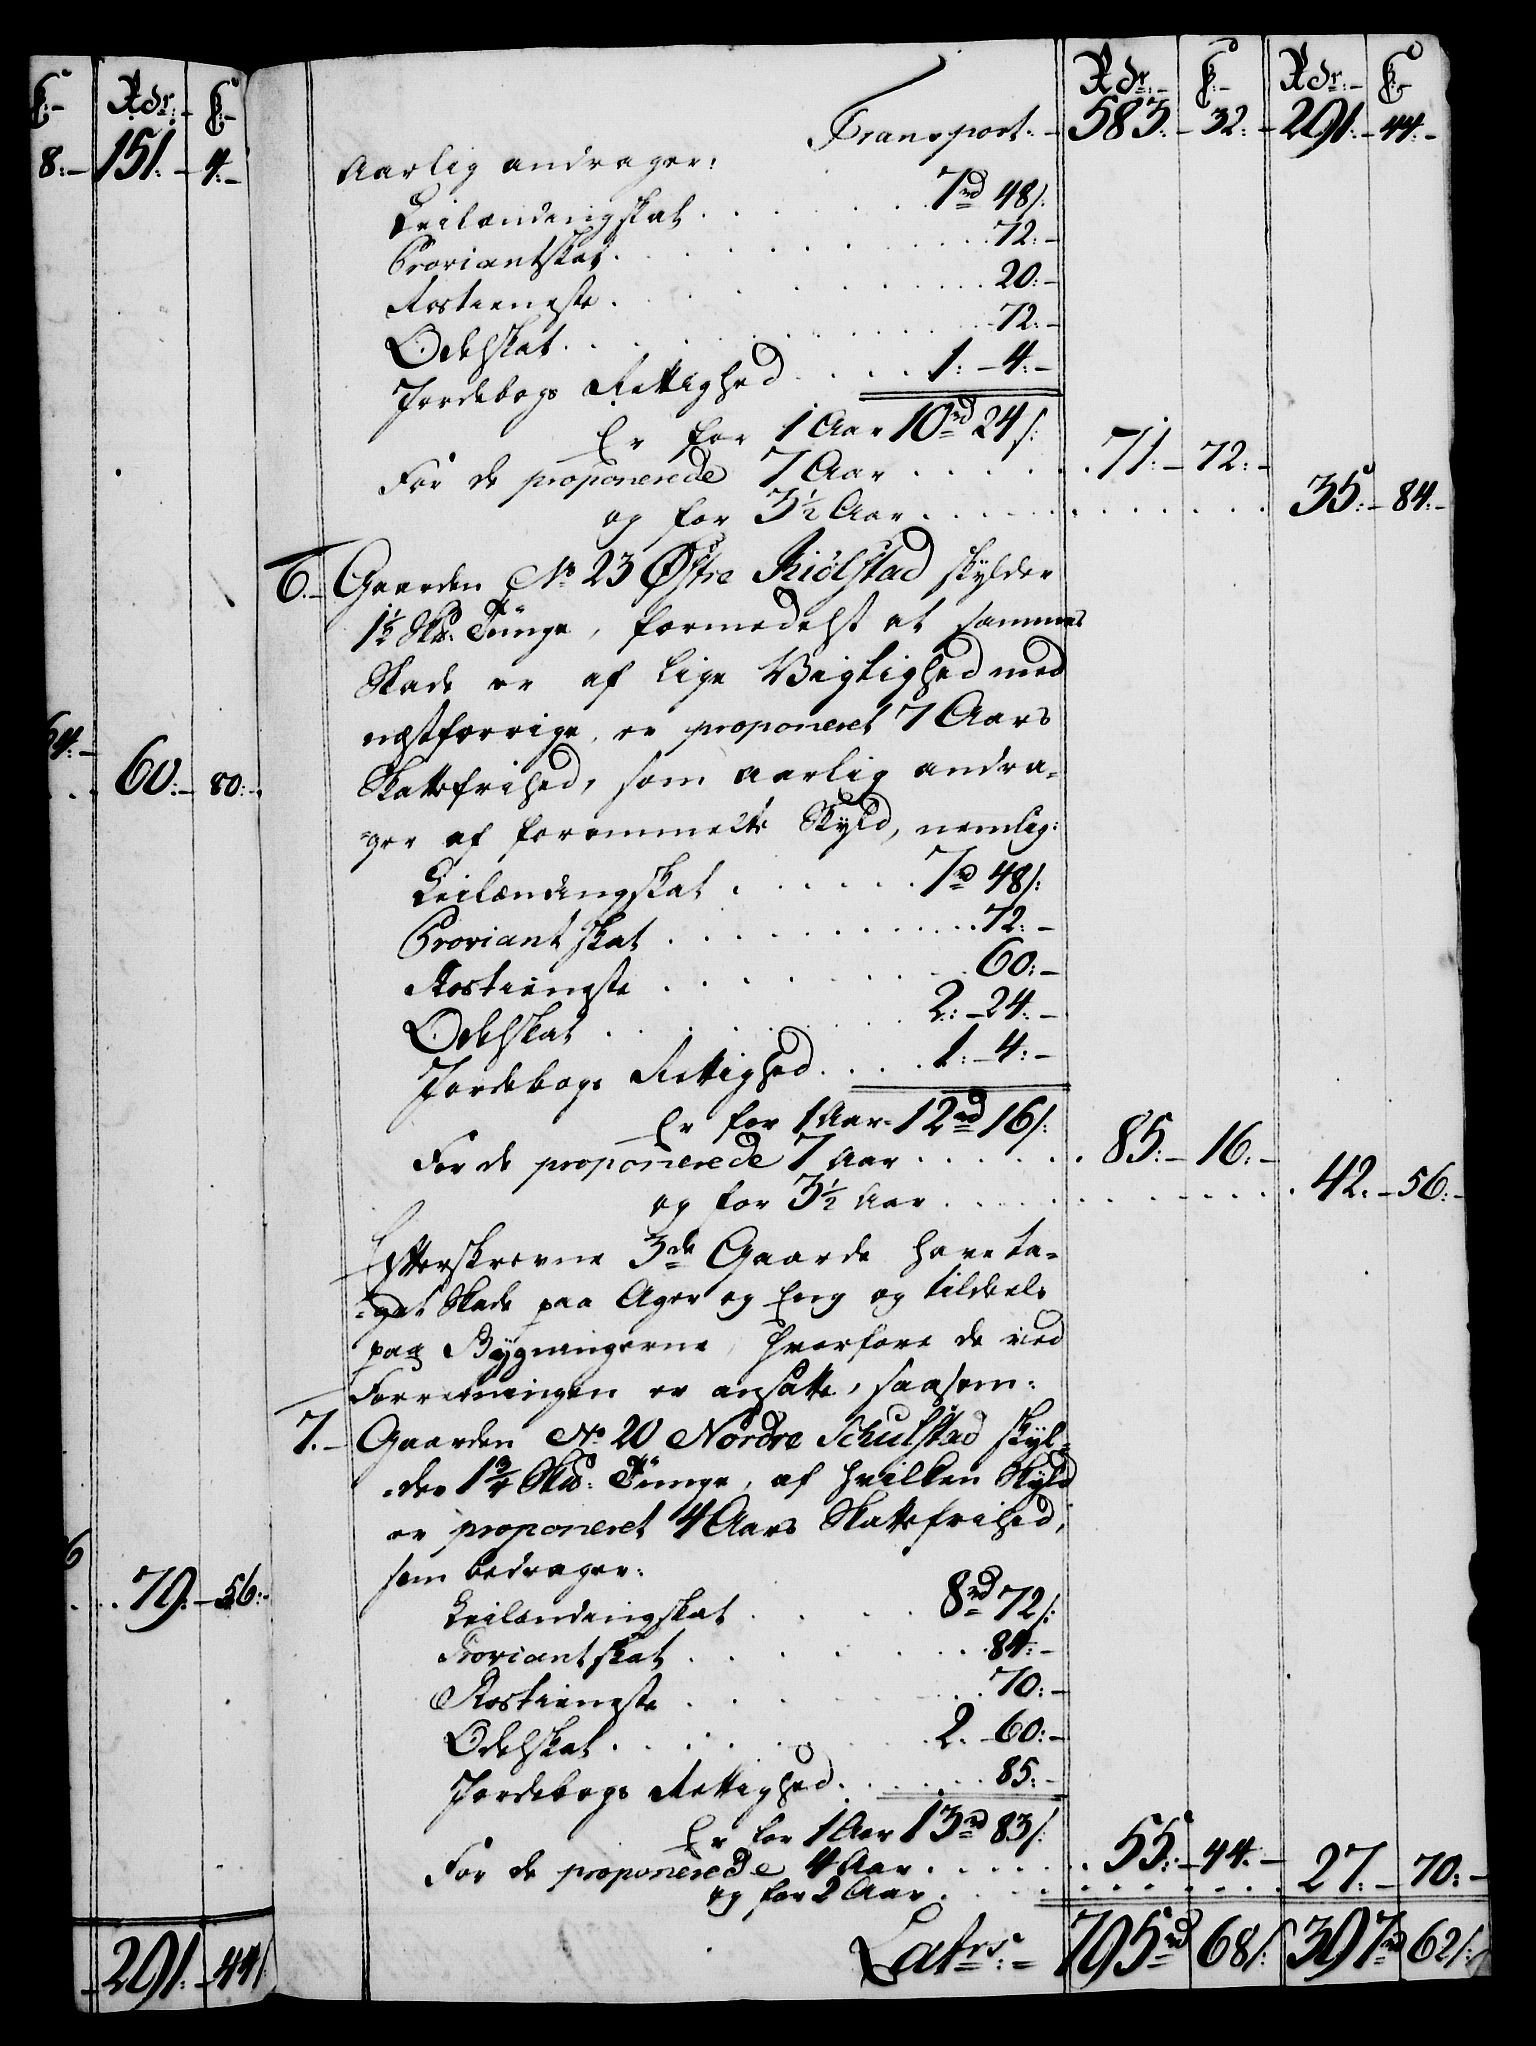 Rdr. ß. Rdr. ß.
Transport: 583:- 32:- 291:- 44:-
Aarlig andrager:
Leilændingskat 7rd 48/:
Proviantskat 72:-
Rostieneste 20:-
Odelskat 72:-
Jordebogs Rettighed 1:- 4:-
Er for 1 Aar 10rd 24/:
For de proponerede 7 Aar 71:- 72:-
og for 3½ Aar 35:- 84:-
6.- Gaarden No 23 Østre Kiølstad skylder
1½ Skd: Tunge, formedelst at sammes
Skade er af lige Vigtighed med
næstforrige, er proponeret 7 Aars
Skattefrihed, som aarlig andra-
-ger af forommelte Skyld, nemlig:
Leilændingskat 7rd 48/:
Proviantskat 72:-
Rostieneste 60:-
Odelskat 2:- 24:-
Jordebogs Rettighed 1:- 4:-
Er for 1 Aar 12rd 16/:
For de proponerede 7 Aar 85:- 16:-
og for 3½ Aar 42:- 56:-
Efterskrevne 3de Gaarde have ta-
-get Skade paa Ager og Eng og tildeels
paa Bygningerne, hvorfore de ved
Forretningen er ansatte, saasom:
7.- Gaarden No 20 Nordre Schulstad skyl-
-der 1¾ Skd: Tunge, af hvilken Skyld
er proponeret 4 Aars Skattefrihed,
som bedrager:
Leilændingskat 8rd 72/:
Proviantskat 84:-
Rostieneste 70:-
Odelskat 2.- 60:-
Jordebogs Rettighed 85:-
Er for 1 Aar 13rd 83/:
For de proponerede 4 Aar 55:- 44:-
og for 2 Aar 27:- 70:-
Latus:- 795rd 68/: 397rd 62/:
ß:- Rdr:- ß:-
8:- 151:- 4:-
64:-
60:- 80:-
6
79:- 56:-
291:- 44/: